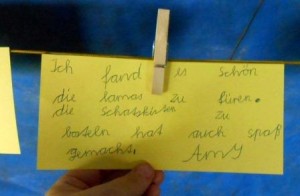 Ich fand es schön
die lamas zu füren.
die Schatzkisten zu
basteln hat auch spaß
gemacht. Amy